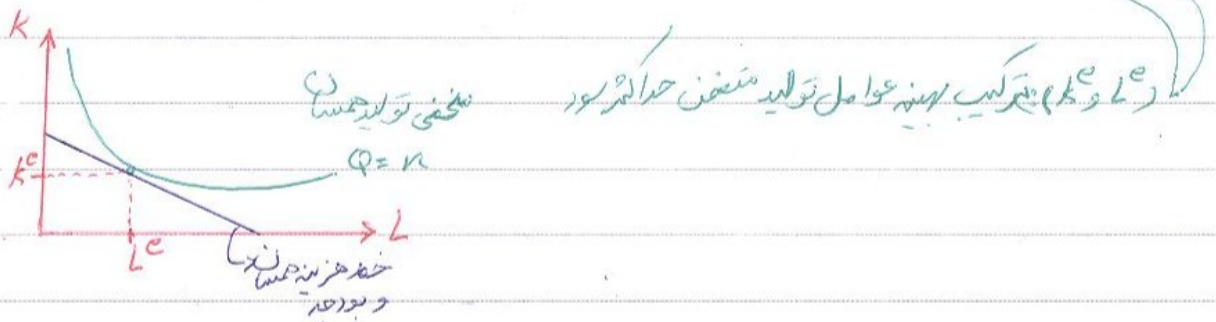 K
(K^e و L^e) ترکیب بهینه عوامل تولید متضمن حداکثر سود
منحنی تولید همسان
Q = n
K^e
L
L^e
خط هزینه همسان
و بودجه